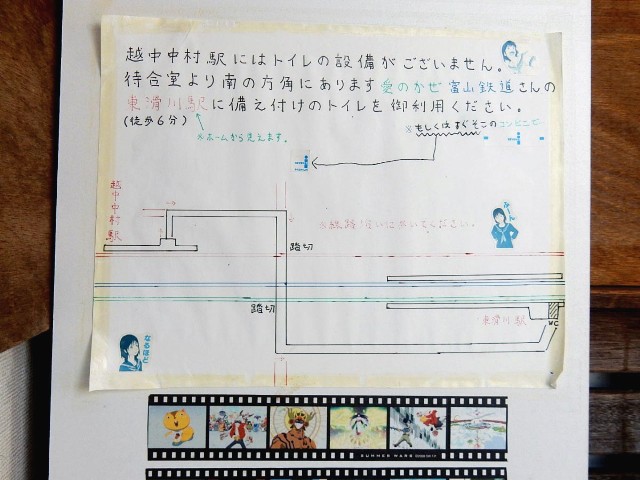 越中中村駅にはトイレの設備がございません。
待合室より南の方角にあります愛のかぜ富山鉄道さんの
東滑川駅に備え付けのトイレを御利用ください。
(徒歩6分)
※ホームから見えます。
※もしくはすぐそこのコンビニで
越中中村駅
※線路沿いに歩いてください。
踏切
踏切
東滑川駅
WC
なるほど
SUMMER WARS